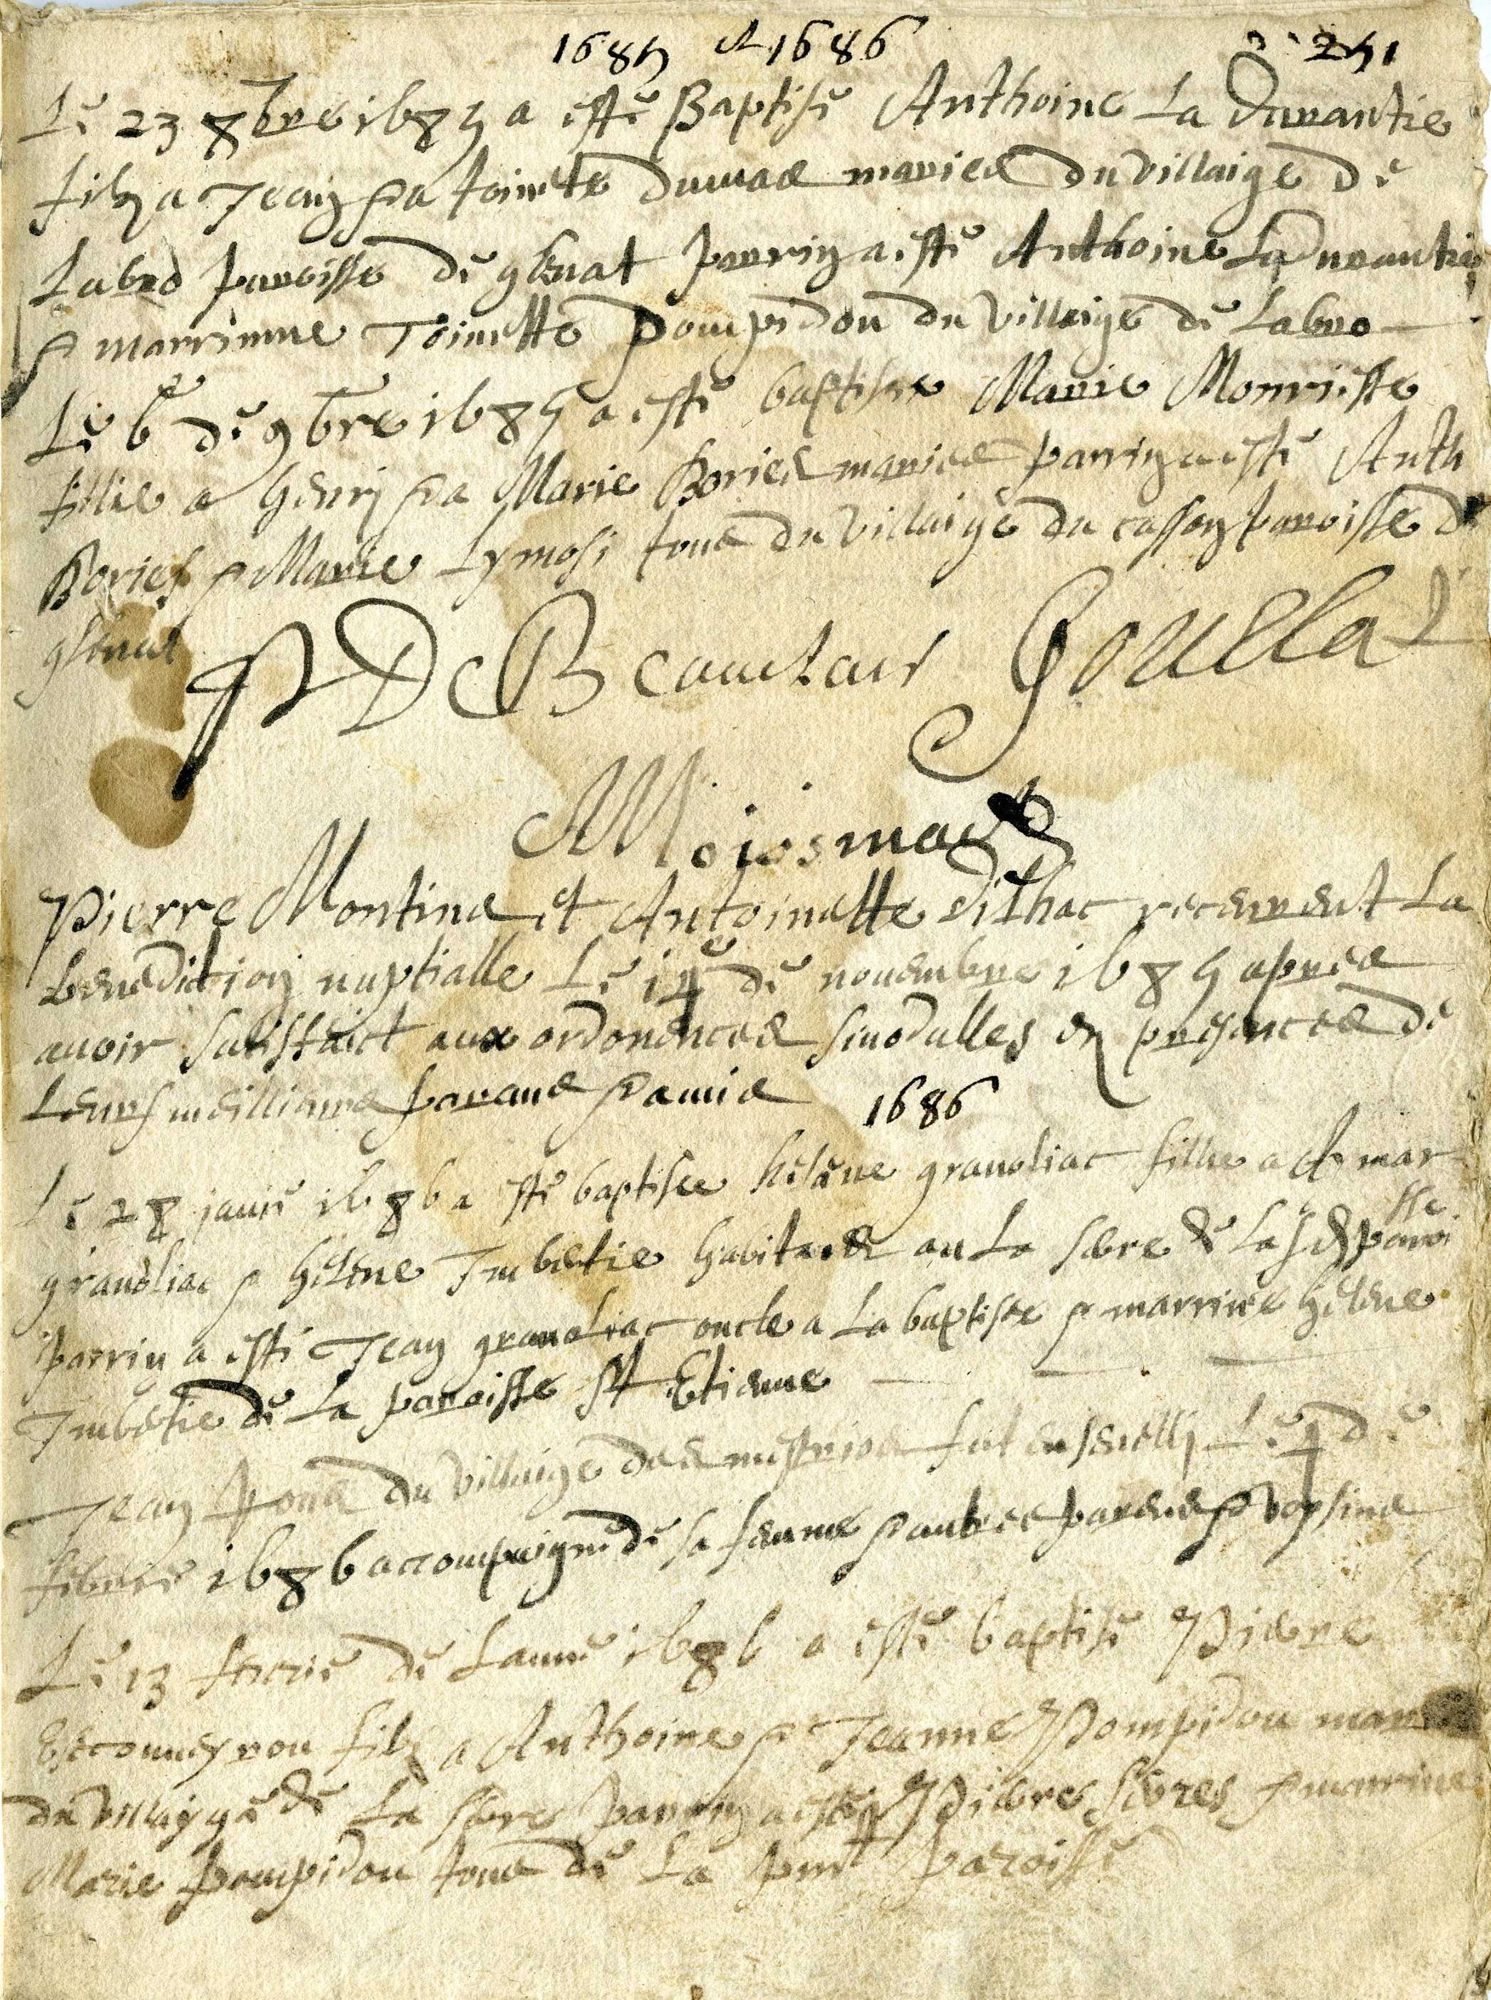 1685 et 1686 251
Le 23 8bre 1685 a esté Baptisé Anthoine La Durantie
filz a Jean & a toinete dumas maries du villaige de
Labro paroisse de glenat parrin a esté Anthoine La Durantie
& marrinne Toinette pompidou du villaige de Labro
Le 6e de 9bre 1685 a esté baptisée Marie Monrieste
fillie a henrij & a Marie Bories maries parrin a esté Anth
Bories & Marie Lymosi tous du villaige du casson paroisse d
glenat
P De Beauclair Gouzla
Moiesmade
Pierre Montine et Antoinette Vilhac receurent La
benediction nuptialle Le 14e de nouembre 1685 apres
auoir satisfaict aux ordonences sinodalles en presences de
Leurs meillieurs parans & amis
1686
Le 28 janvié 1686 a esté baptisée heléne granoliac fillie a mar
granoliac & heléne Imbertie habitans au La serre de La paroi
sse
parrin a esté Jean granoliac oncle a La baptisée & marrine heléne
Imbertie de La paroisse St Etienne
Jean du villaige des fut enseveli Le de
febvrié 1686 accompaigné de sa femme & autres parens & voysins
Le 13 febvrié de Lanné 1686 a esté baptisé Pierre
Escouneyrou filz a Anthoine & Jeanne Pompidou mar
du villayge de La serre parrin a esté Pierre serres & marrine
Marie pompidou tous de La pnt paroisse